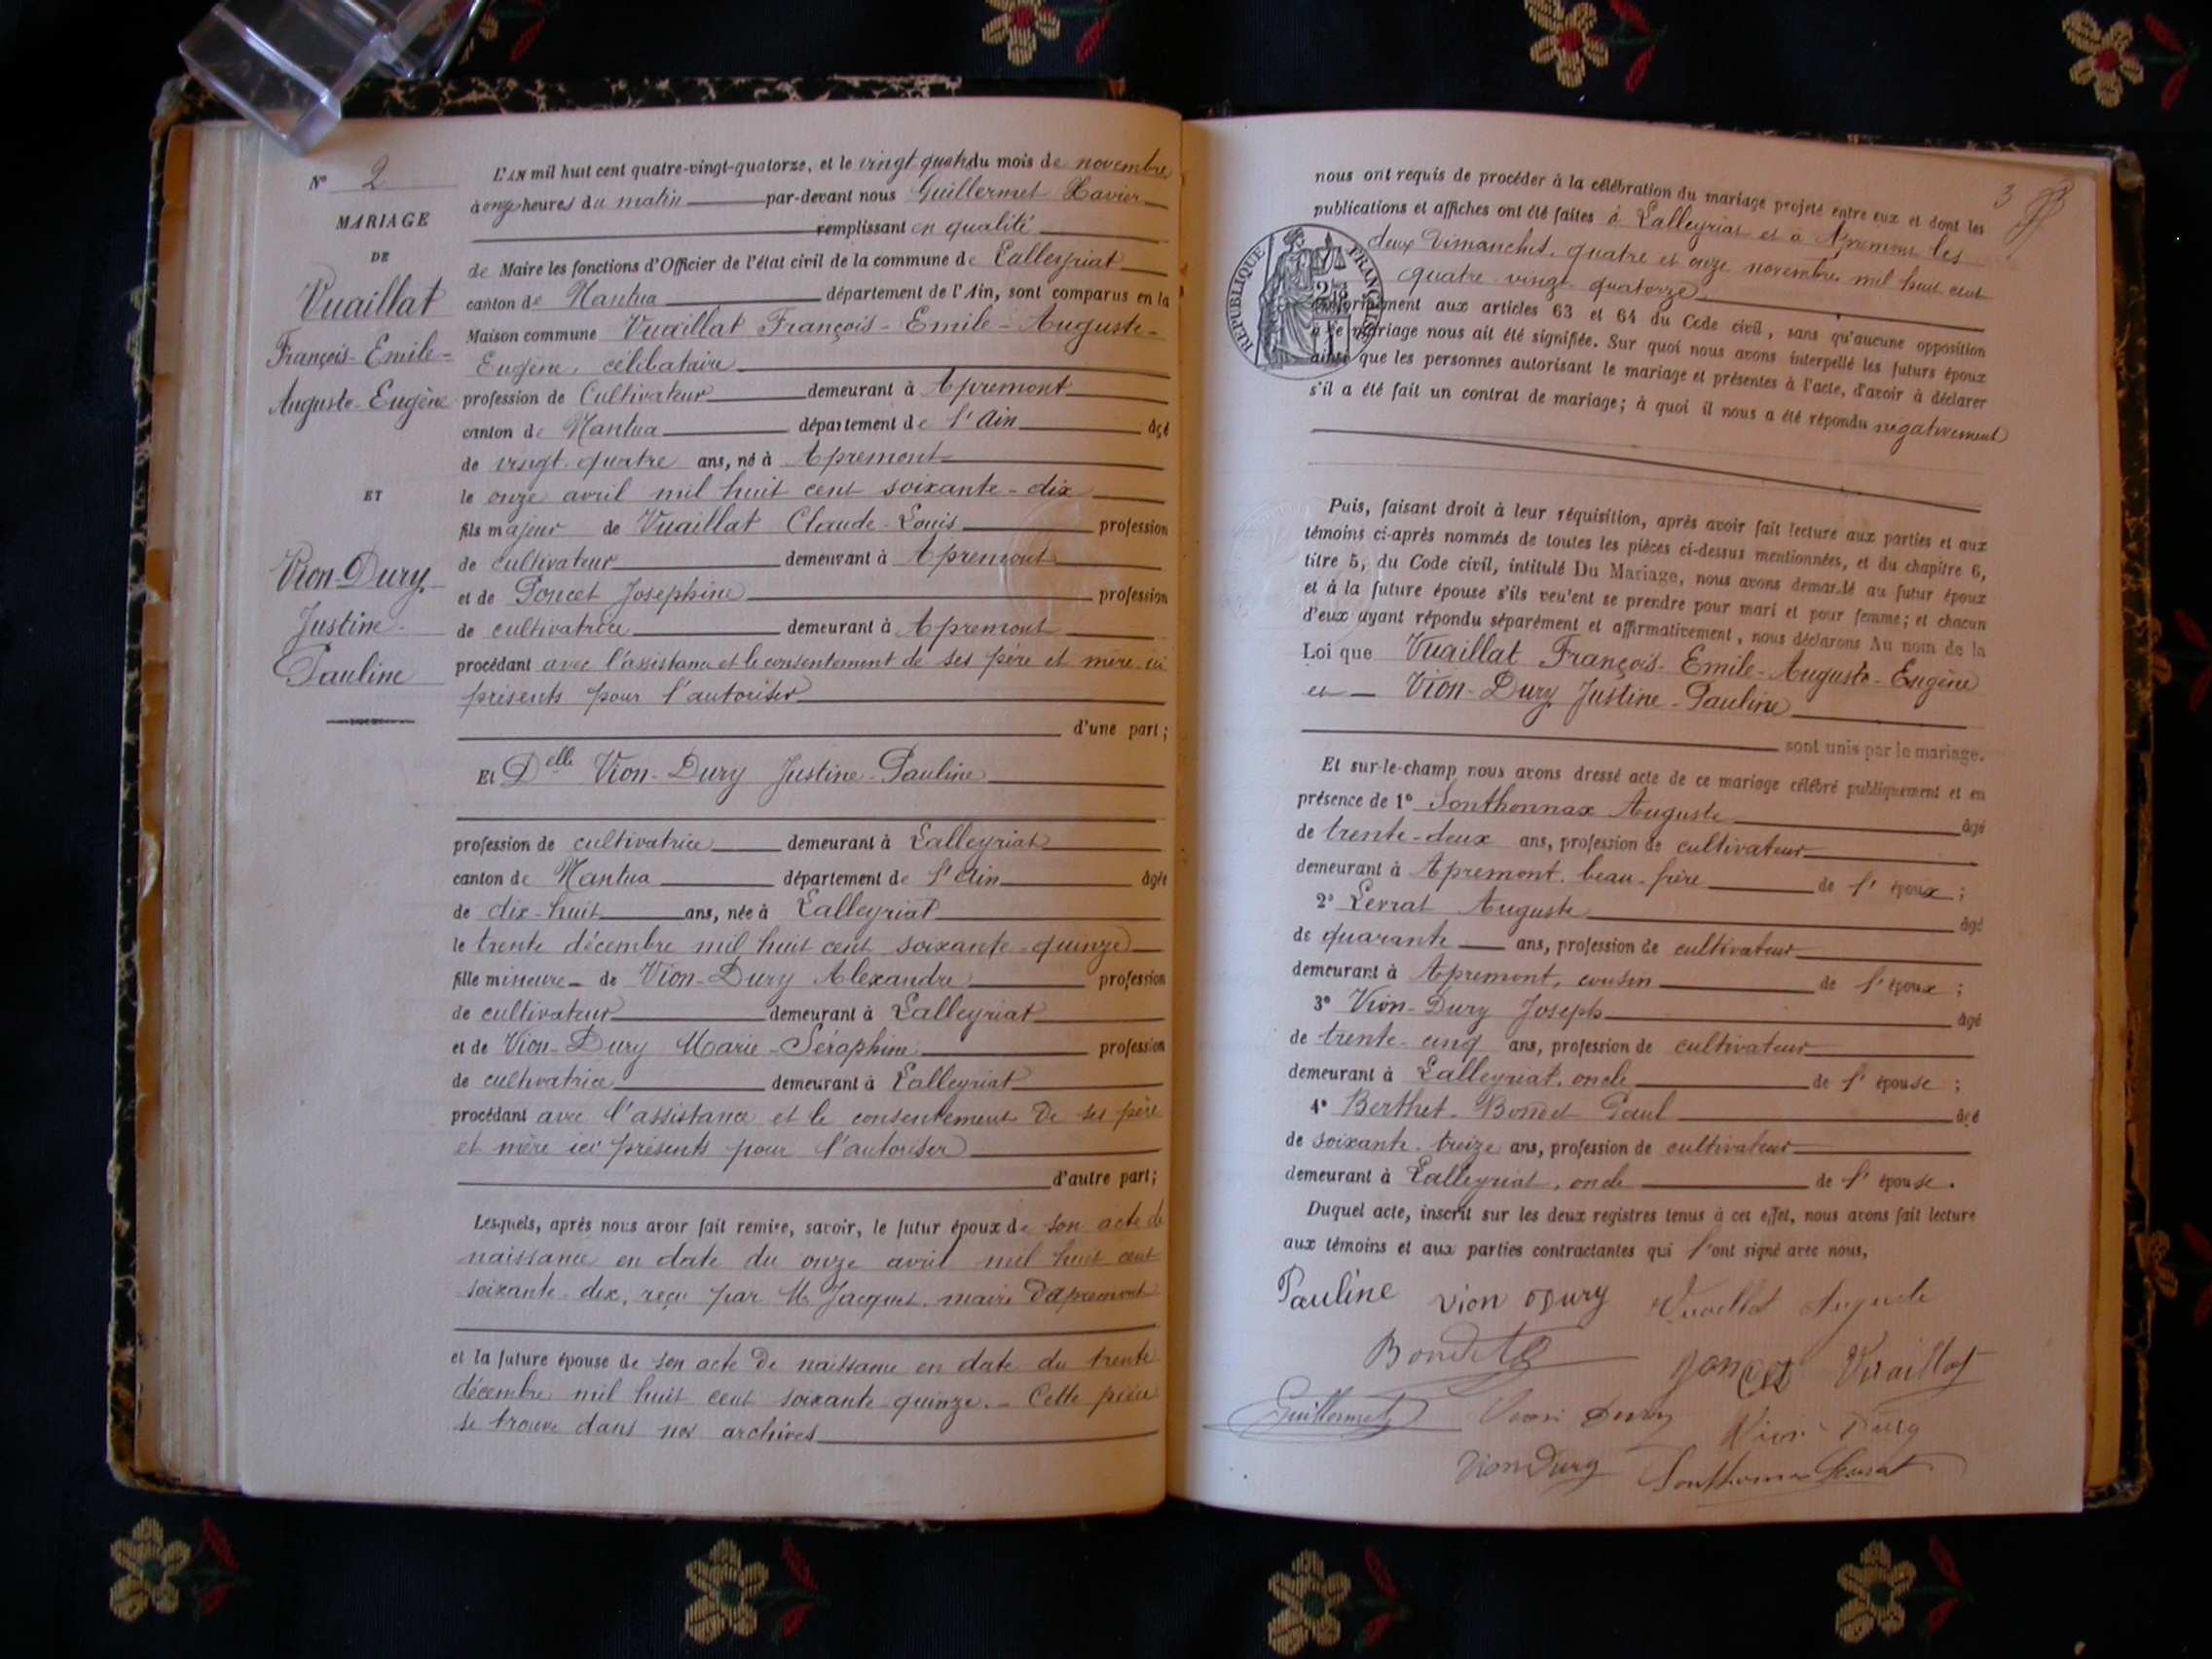 N° 2
MARIAGE
DE
Vuaillat
François-Emile-
Auguste-Eugène
ET
Vion-Dury
Justine-
Pauline
L'AN mil huit cent quatre-vingt-quatorze, et le vingt quatre du mois de novembre
à onze heures du matin par-devant nous Guillermet Xavier
remplissant en qualité
de Maire les fonctions d'Officier de l'état civil de la commune de Lalleyriat
canton de Nantua département de l'Ain, sont comparus en la
Maison commune Vuaillat François-Emile-Auguste-
Eugène, célibataire
profession de Cultivateur demeurant à Apremont
canton de Nantua département de l'Ain âgé
de vingt-quatre ans, né à Apremont
le onze avril mil huit cent soixante-dix
fils majeur de Vuaillat Claude-Louis profession
de cultivateur demeurant à Apremont
et de Poncet Josephine profession
de cultivatrice demeurant à Apremont
procédant avec l'assistance et le consentement de ses père et mère ici
présents pour l'autoriser
d'une part;
Et Delle Vion-Dury Justine-Pauline
profession de cultivatrice demeurant à Lalleyriat
canton de Nantua département de l'Ain âgée
de dix-huit ans, née à Lalleyriat
le trente décembre mil huit cent soixante-quinze
fille mineure de Vion-Dury Alexandre profession
de cultivateur demeurant à Lalleyriat
et de Vion-Dury Marie-Séraphine profession
de cultivatrice demeurant à Lalleyriat
procédant avec l'assistance et le consentement de ses père
et mère ici présents pour l'autoriser
d'autre part;
Lesquels, après nous avoir fait remise, savoir, le futur époux de son acte de
naissance en date du onze avril mil huit cent
soixante-dix, reçu par M. Jacquet, maire d'apremont
et la future épouse de son acte de naissance en date du trente
décembre mil huit cent soixante-quinze. - Cette pièce
se trouve dans nos archives
3
nous ont requis de procéder à la célébration du mariage projeté entre eux et dont les
publications et affiches ont été faites à Lalleyriat et à Apremont les
deux Dimanches, quatre et onze novembre mil huit cent
quatre-vingt-quatorze
RÉPUBLIQUE FRANÇAISE
conformément aux articles 63 et 64 du Code civil, sans qu'aucune opposition
à ce mariage nous ait été signifiée. Sur quoi nous avons interpellé les futurs époux
ainsi que les personnes autorisant le mariage et présentes à l'acte, d'avoir à déclarer
s'il a été fait un contrat de mariage; à quoi il nous a été répondu négativement
Puis, faisant droit à leur réquisition, après avoir fait lecture aux parties et aux
témoins ci-après nommés de toutes les pièces ci-dessus mentionnées, et du chapitre 6,
titre 5, du Code civil, intitulé Du Mariage, nous avons demandé au futur époux
et à la future épouse s'ils veulent se prendre pour mari et pour femme; et chacun
d'eux ayant répondu séparément et affirmativement, nous déclarons Au nom de la
Loi que Vuaillat François-Emile-Auguste-Eugène
et Vion-Dury Justine-Pauline
sont unis par le mariage.
Et sur-le-champ nous avons dressé acte de ce mariage célébré publiquement et en
présence de 1° Sonthonnax Auguste âgé
de trente-deux ans, profession de cultivateur
demeurant à Apremont, beau-frère de l'époux;
2° Levrat Auguste âgé
de quarante ans, profession de cultivateur
demeurant à Apremont, cousin de l'époux;
3° Vion-Dury Joseph âgé
de trente-cinq ans, profession de cultivateur
demeurant à Lalleyriat, oncle de l'épouse;
4° Berthet-Bondet Paul âgé
de soixante-treize ans, profession de cultivateur
demeurant à Lalleyriat, oncle de l'épouse.
Duquel acte, inscrit sur les deux registres tenus à cet effet, nous avons fait lecture
aux témoins et aux parties contractantes qui l'ont signé avec nous,
Pauline Vion Dury Vuaillat Auguste
Bondet Poncet Vuaillat
Guillermet Vion Dury Vion Dury
Vion Dury Sonthonnax Levrat